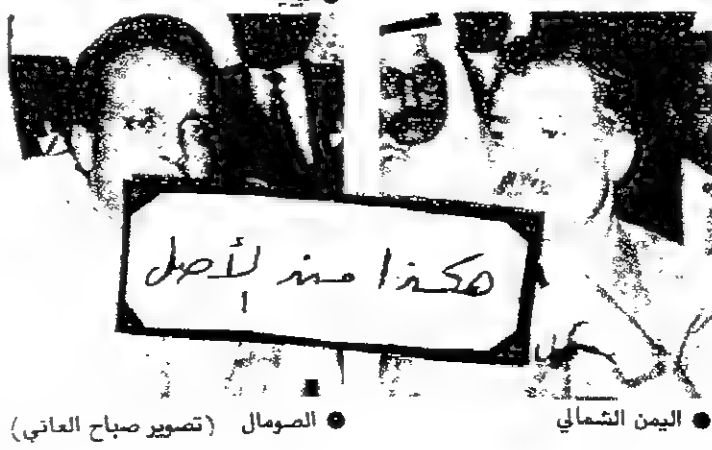 هكذا من الأصل
● اليمن الشمالي
● الصومال (تصوير صباح العاني)